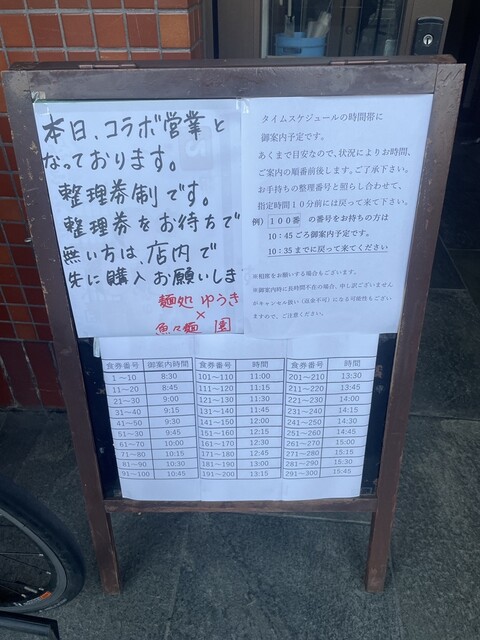 本日、コラボ営業と
なっております。
整理券制です。
整理券をお持ちで
無い方は、店内で
先に購入お願いしま
麺処 ゆうき
×
魚々麺 園
タイムスケジュールの時間帯に
御案内予定です。
あくまで目安なので、状況によりお時間、
ご案内の順番前後します。ご了承下さい。
お手持ちの整理番号と照らし合わせて、
指定時間10分前には戻って来て下さい。
例) 100番 の番号をお持ちの方は
10:45ごろ御案内予定です。
10:35までに戻って来てください
※相席をお願いする場合もございます。
※御案内時に長時間不在の場合、申し訳ございません
がキャンセル扱い(返金不可)になる可能性もござい
ますので、ご注意ください。
食券番号 御案内時間 食券番号 時間 食券番号 時間
1～10 8:30 101～110 11:00 201～210 13:30
11～20 8:45 111～120 11:15 211～220 13:45
21～30 9:00 121～130 11:30 221～230 14:00
31～40 9:15 131～140 11:45 231～240 14:15
41～50 9:30 141～150 12:00 241～250 14:30
51～30 9:45 151～160 12:15 251～260 14:45
61～70 10:00 161～170 12:30 261～270 15:00
71～80 10:15 171～180 12:45 271～280 15:15
81～90 10:30 181～190 13:00 281～290 15:30
91～100 10:45 191～200 13:15 291～300 15:45